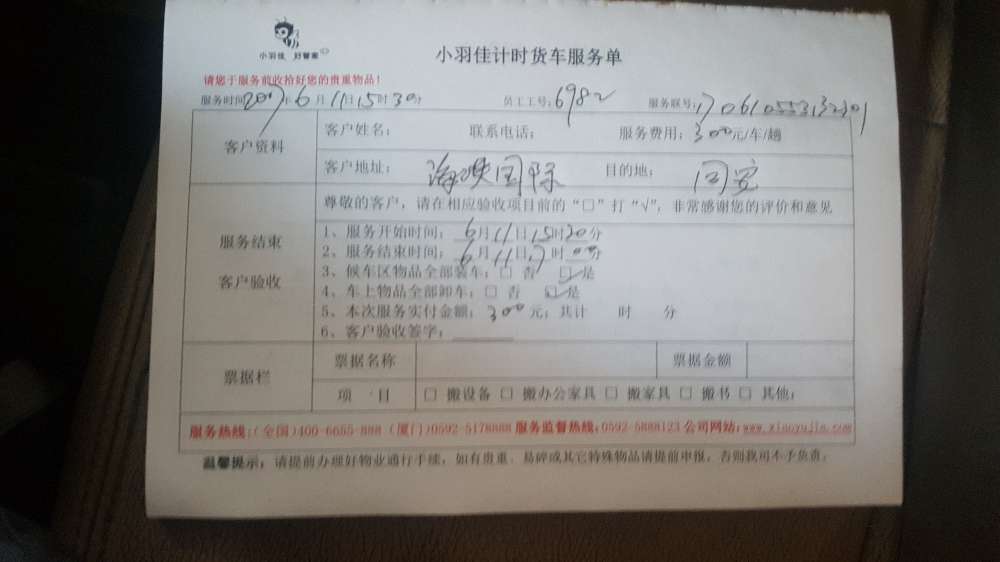 小羽佳 好管家
小羽佳计时货车服务单
请您于服务前收拾好您的贵重物品！
服务时间2017年6月11日15时30分 员工工号：6982 服务联号：
客户资料
客户姓名： 联系电话： 服务费用：300元/车/趟
客户地址：海峡国际 目的地：同安
服务结束
客户验收
尊敬的客户，请在相应验收项目前的“□”打“√”，非常感谢您的评价和意见
1、服务开始时间：6月11日15时20分
2、服务结束时间：6月11日17时00分
3、候车区物品全部装车：□ 否 ☑是
4、车上物品全部卸车：□ 否 ☑是
5、本次服务实付金额：300元；共计 时 分
6、客户验收签字：
票据栏
票据名称 票据金额
项 目 □ 搬设备 □ 搬办公家具 □ 搬家具 □ 搬书 □ 其他：
服务热线：（全国）400-6655-888（厦门）0592-5178888 服务监督热线：0592-5888123 公司网站：www.xiaoyujia.com
温馨提示：请提前办理好物业通行手续，如有贵重、易碎或其它特殊物品请提前申报，否则我司不予负责。